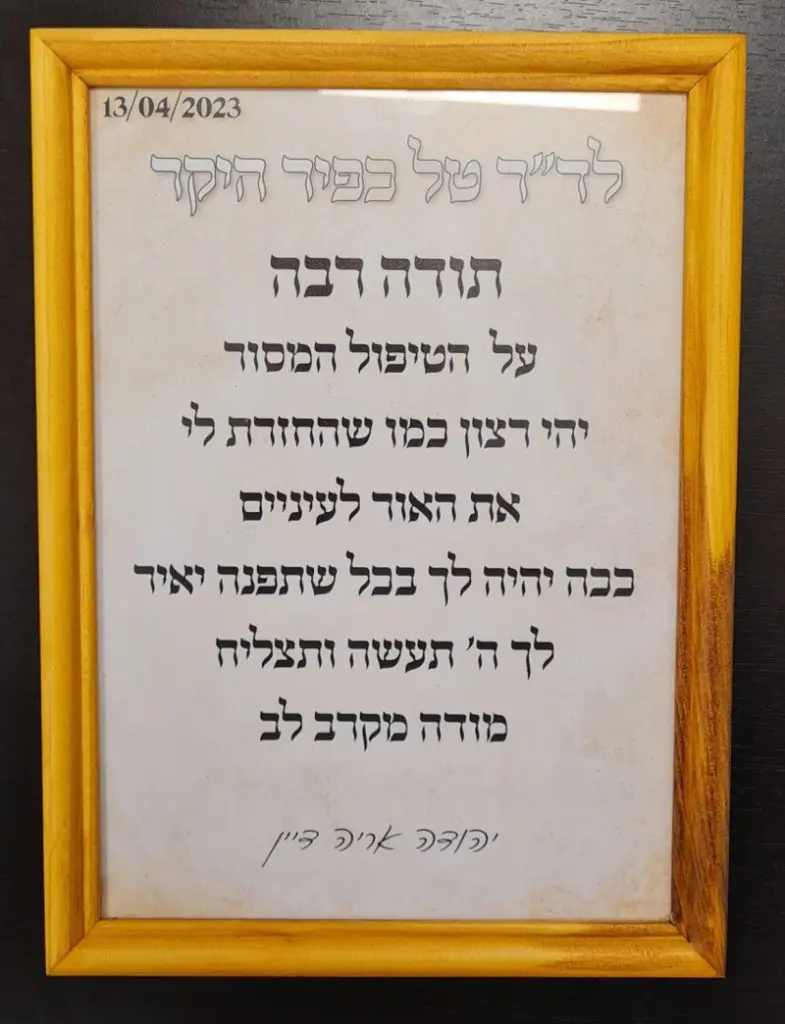 13/04/2023
לד״ר טל כפיר היקר
תודה רבה
על הטיפול המסור
יהי רצון כמו שהחזרת לי
את האור לעיניים
ככה יהיה לך בכל שתפנה יאיר
לך ה׳ תעשה ותצליח
מודה מקרב לב
יהודה אריה דיין